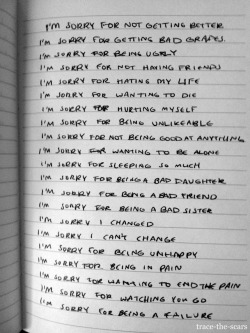 I'M SORRY FOR NOT GETTING BETTER
I'M SORRY FOR GETTING BAD GRADES.
I'M SORRY FOR BEING UGLY
I'M SORRY FOR NOT HAVING FRIENDS
I'M SORRY FOR HATING MY LIFE
I'M SORRY FOR WANTING TO DIE
I'M SORRY FOR HURTING MYSELF
I'M SORRY FOR BEING UNLIKEABLE
I'M SORRY FOR NOT BEING GOOD AT ANYTHING
I'M SORRY FOR WANTING TO BE ALONE
I'M SORRY FOR SLEEPING SO MUCH
I'M SORRY FOR BEING A BAD DAUGHTER
I'M SORRY FOR BEING A BAD FRIEND
I'M SORRY FOR BEING A BAD SISTER
I'M SORRY I CHANGED
I'M SORRY I CAN'T CHANGE
I'M SORRY FOR BEING UNHAPPY
I'M SORRY FOR BEING IN PAIN
I'M SORRY FOR WANTING TO END THE PAIN
I'M SORRY FOR WATCHING YOU GO
I'M SORRY FOR BEING A FAILURE
trace-the-scars